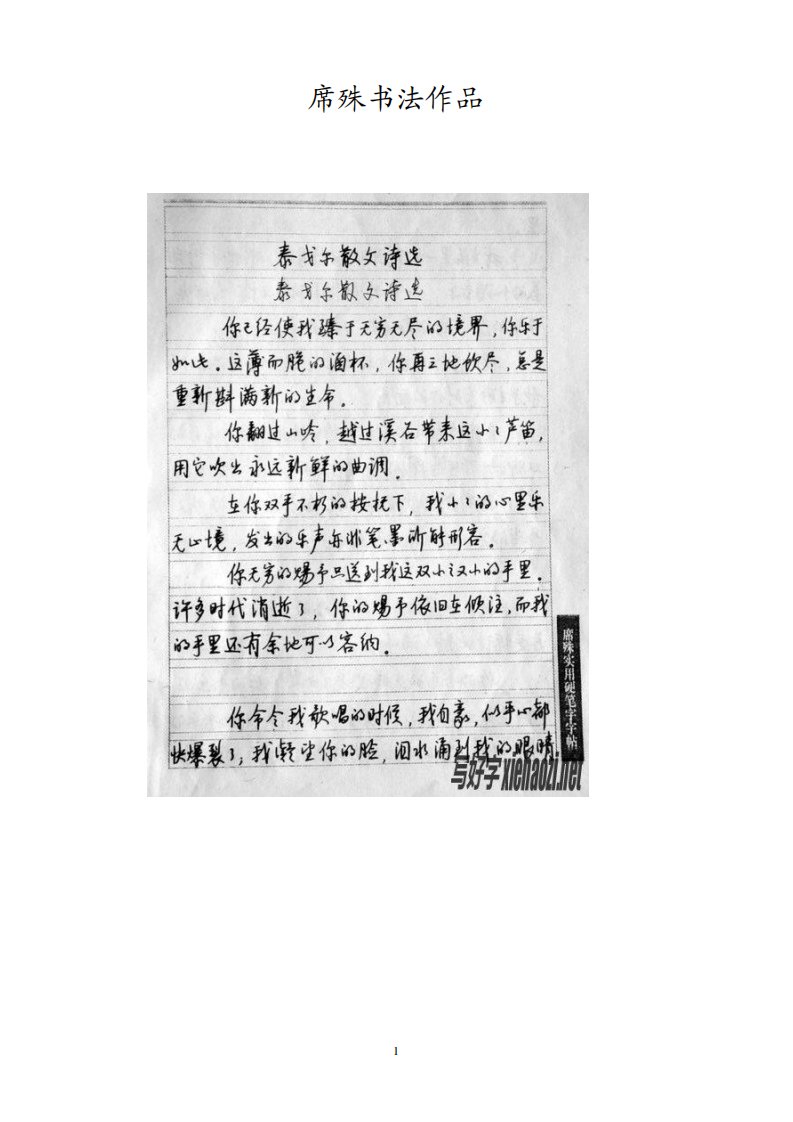 席殊书法作品
泰戈尔散文诗选
泰戈尔散文诗选
你已经使我臻于无穷无尽的境界，你乐于
如此。这薄而脆的酒杯，你再三地饮尽，总是
重新斟满新的生命。
你翻过山岭，越过溪谷带来这小小芦笛，
用它吹出永远新鲜的曲调。
在你双手不朽的按抚下，我小小的心里乐
无止境，发出的乐声亦非笔墨所能形容。
你无穷的赐予只送到我这双小之又小的手里。
许多时代消逝了，你的赐予依旧在倾注，而我
的手里还有余地可以容纳。
你命令我歌唱的时候，我自豪，似乎心都
快爆裂了，我凝望你的脸，泪水涌到我的眼睛。
席殊实用硬笔字字帖
写好字 xiehaozi.net
1